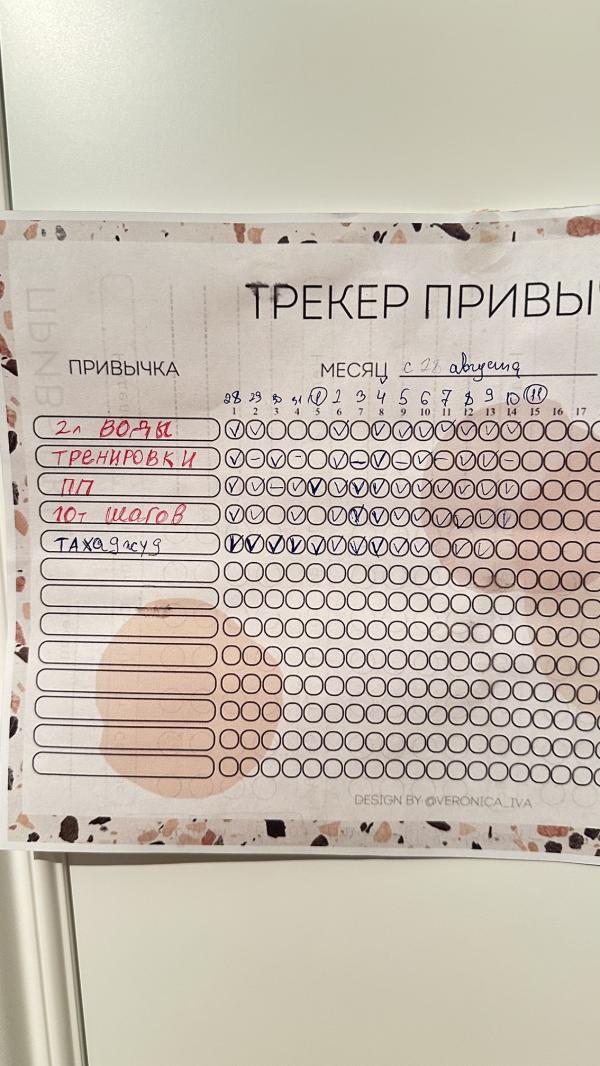 ТРЕКЕР ПРИВЫЧ
ПРИВЫЧКА МЕСЯЦ с 28 августа
28 29 30 31 1 2 3 4 5 6 7 8 9 10 11
1 2 3 4 5 6 7 8 9 10 11 12 13 14 15 16 17
2л ВОДЫ
ТРЕНИРОВКИ
ПП
10т шагов
DESIGN BY @VERONICA_IVA